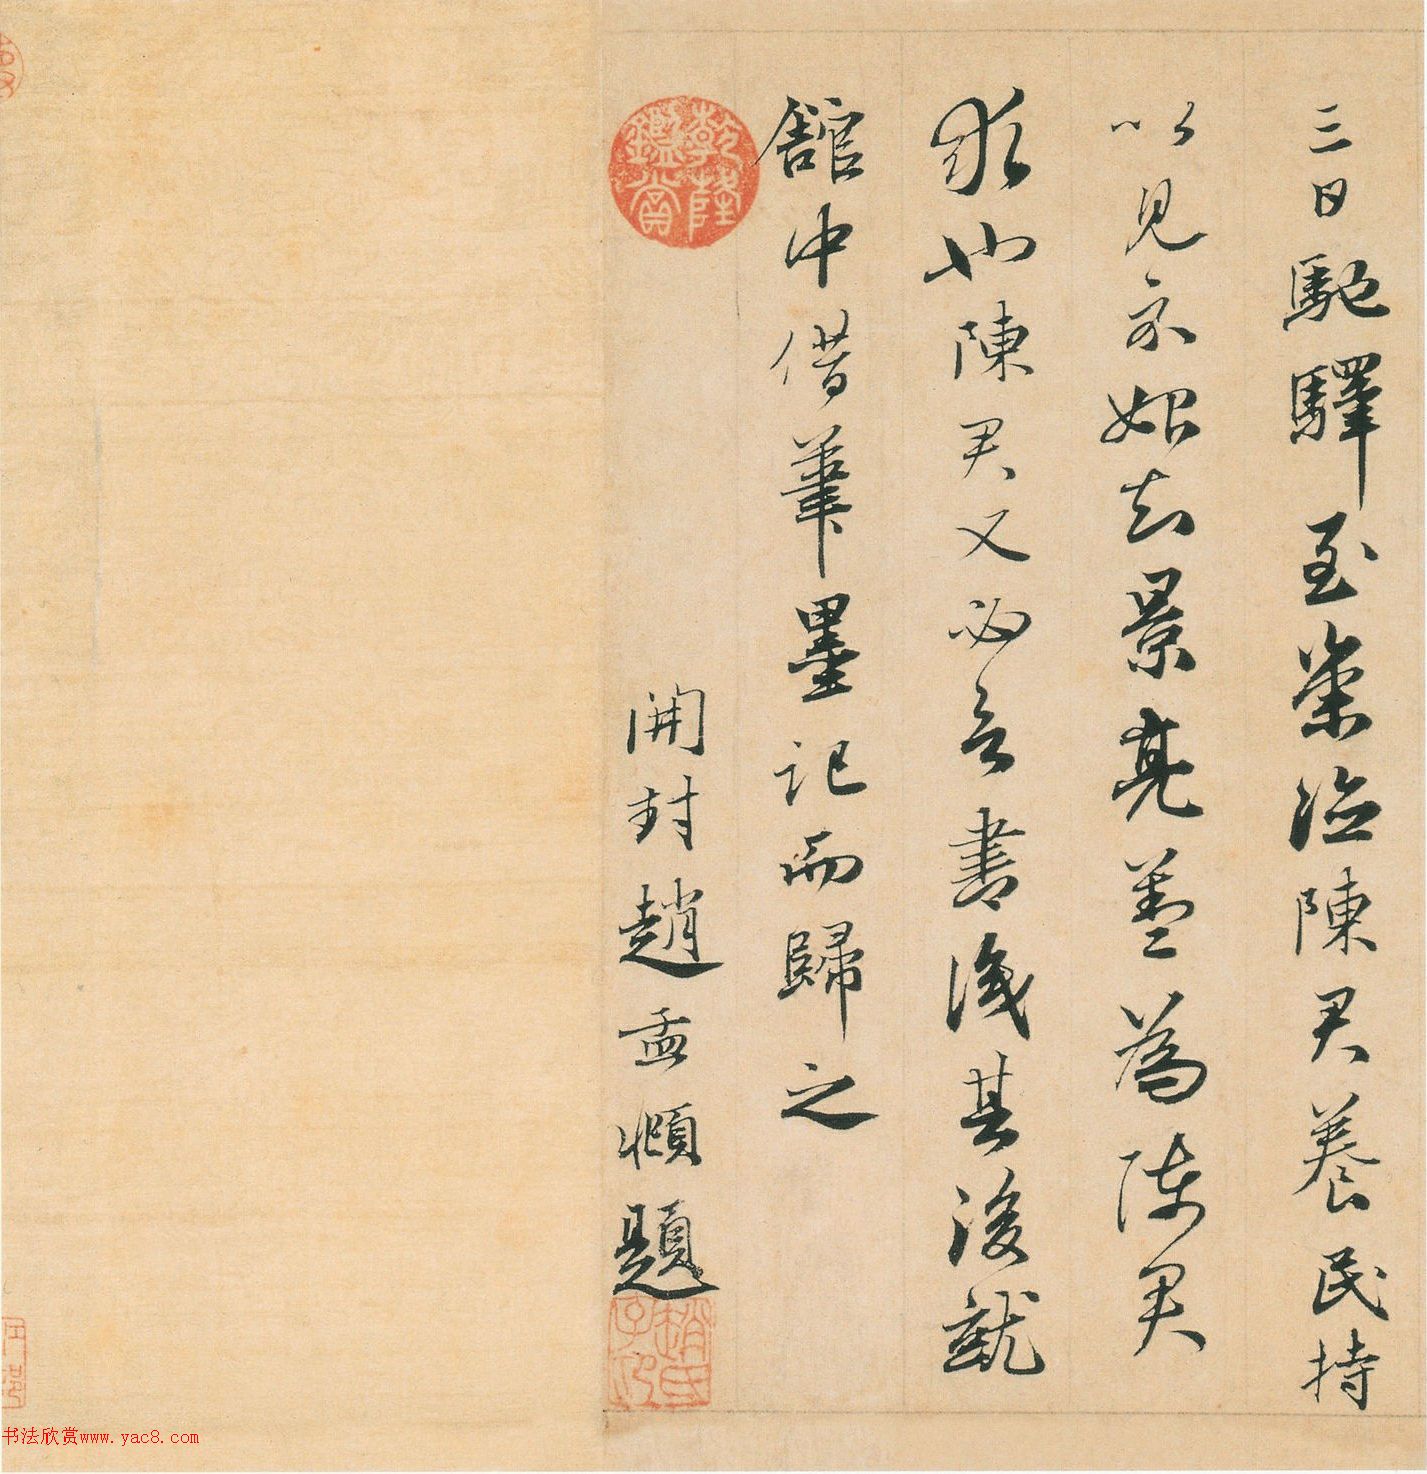 三日馳驛至陳君養民持
以見示始知景亮蓋為陳君
求也陳君又書識其後就
館中借筆墨記而歸之
開封趙孟頫題
乾隆鑑賞
趙氏子昂
书法欣赏www.yac8.com